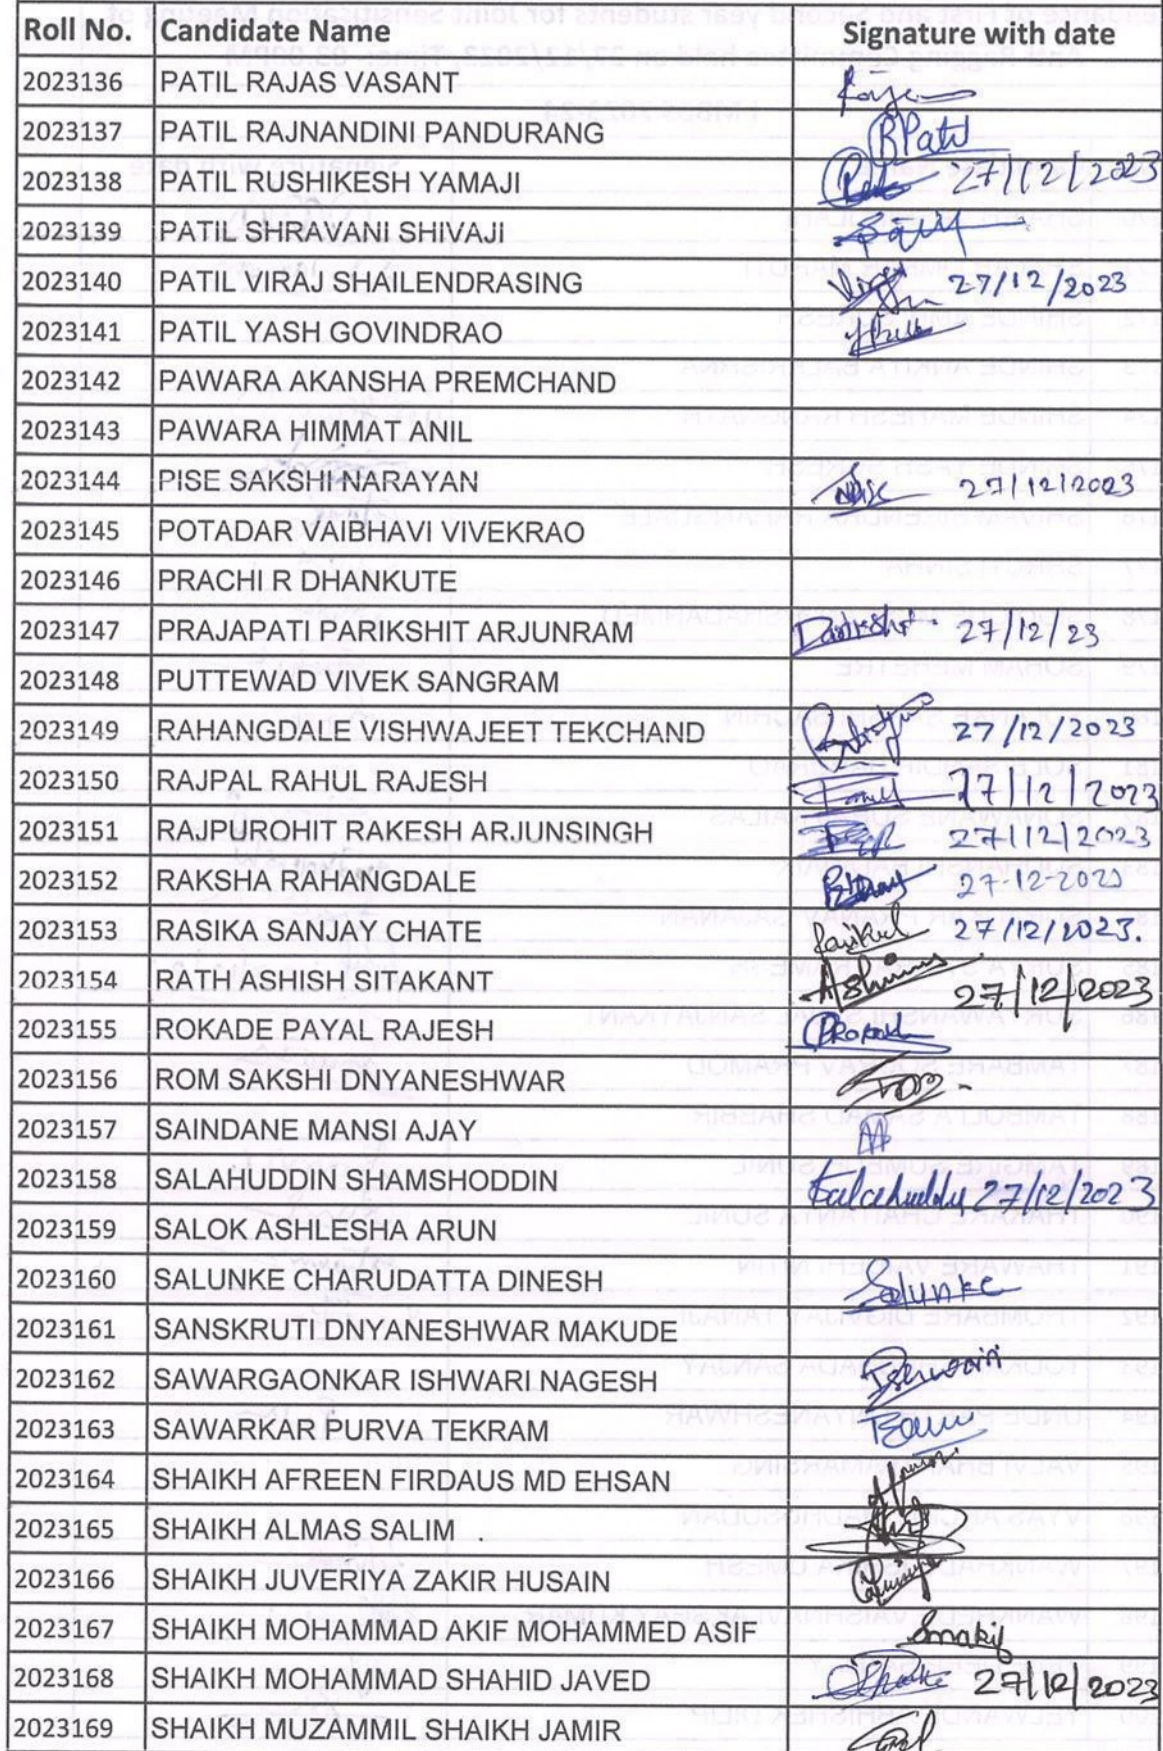 Roll No. Candidate Name Signature with date
2023136 PATIL RAJAS VASANT
2023137 PATIL RAJNANDINI PANDURANG RPatil
2023138 PATIL RUSHIKESH YAMAJI 27/12/2023
2023139 PATIL SHRAVANI SHIVAJI
2023140 PATIL VIRAJ SHAILENDRASING 27/12/2023
2023141 PATIL YASH GOVINDRAO
2023142 PAWARA AKANSHA PREMCHAND
2023143 PAWARA HIMMAT ANIL
2023144 PISE SAKSHI NARAYAN 27/12/2023
2023145 POTADAR VAIBHAVI VIVEKRAO
2023146 PRACHI R DHANKUTE
2023147 PRAJAPATI PARIKSHIT ARJUNRAM 27/12/23
2023148 PUTTEWAD VIVEK SANGRAM
2023149 RAHANGDALE VISHWAJEET TEKCHAND 27/12/2023
2023150 RAJPAL RAHUL RAJESH 27/12/2023
2023151 RAJPUROHIT RAKESH ARJUNSINGH 27/12/2023
2023152 RAKSHA RAHANGDALE 27-12-2023
2023153 RASIKA SANJAY CHATE 27/12/2023.
2023154 RATH ASHISH SITAKANT 27/12/2023
2023155 ROKADE PAYAL RAJESH
2023156 ROM SAKSHI DNYANESHWAR
2023157 SAINDANE MANSI AJAY
2023158 SALAHUDDIN SHAMSHODDIN 27/12/2023
2023159 SALOK ASHLESHA ARUN
2023160 SALUNKE CHARUDATTA DINESH Salunke
2023161 SANSKRUTI DNYANESHWAR MAKUDE
2023162 SAWARGAONKAR ISHWARI NAGESH Ishwari
2023163 SAWARKAR PURVA TEKRAM
2023164 SHAIKH AFREEN FIRDAUS MD EHSAN
2023165 SHAIKH ALMAS SALIM
2023166 SHAIKH JUVERIYA ZAKIR HUSAIN
2023167 SHAIKH MOHAMMAD AKIF MOHAMMED ASIF Smakif
2023168 SHAIKH MOHAMMAD SHAHID JAVED 27/12/2023
2023169 SHAIKH MUZAMMIL SHAIKH JAMIR